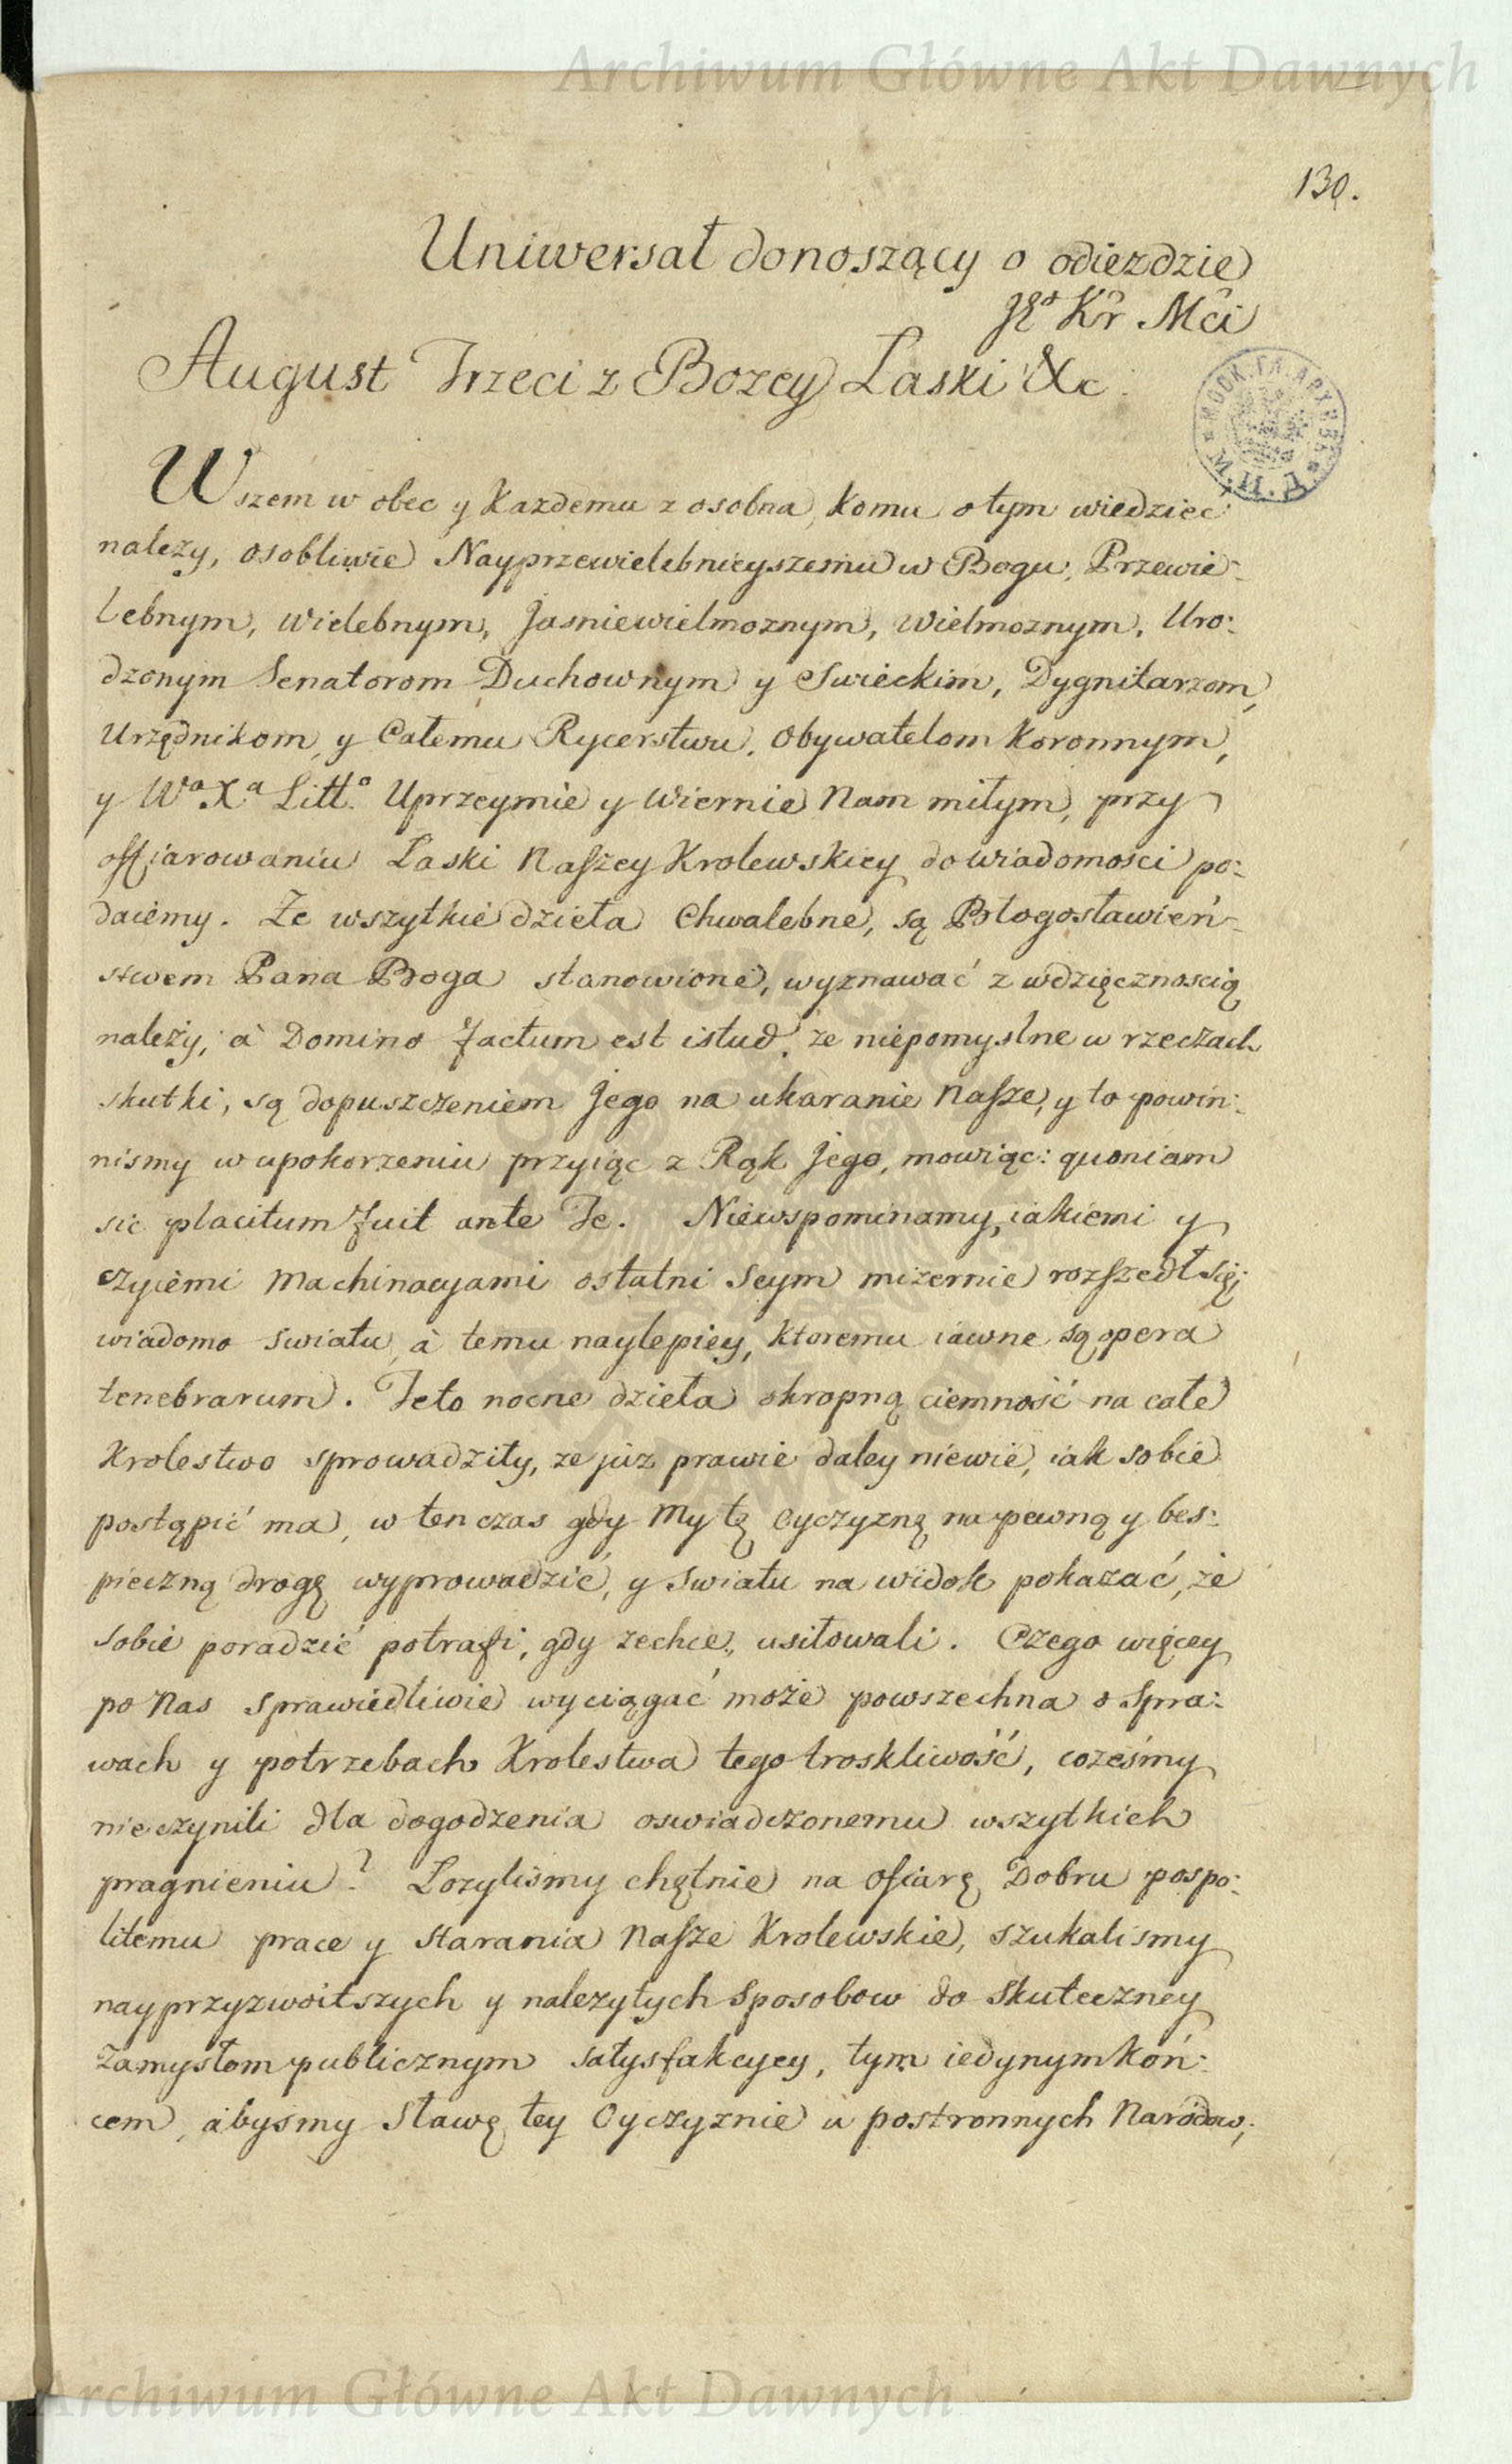 Archiwum Główne Akt Dawnych
130.
Uniwersał donoszący o odiezdzie
JKo Kr Mci
August Trzeci z Bozey Laski &c.
МОСК. ГЛ. АРХИВЪ М. И. Д.
Wszem w obec y Kazdemu z osobna, komu o tym wiedziec
nalezy, osobliwie Nayprzewielebnieyszemu w Bogu, Przewie-
lebnym, Wielebnym, Jasniewielmoznym, Wielmoznym, Uro:
dzonym Senatorom Duchownym y Swieckim, Dygnitarzom,
Urzędnikom, y Całemu Rycerstwu, Obywatelom Koronnym,
y Wo Xa Litto Uprzeymie y Wiernie Nam miłym, przy
offiarowaniu Laski Naszey Krolewskiey do wiadomosci po:
daiemy. Że wszytkie dzieła Chwalebne, są Błogosławień-
stwem Pana Boga stanowione, wyznawać z wdzięcznoscią
należy, à Domino factum est istud, ze niepomyslne w rzeczach
skutki, są dopuszczeniem Jego na ukaranie Nasze, y to powin:
nismy w upokorzeniu przyiąc z Rąk Jego, mowiąc: quoniam
sic placitum fuit ante Te. Niewspominamy, iakiemi y
czyiemi Machinacyami ostatni Seym mizernie rozszedł się;
wiadomo swiatu, à temu naylepiey, ktoremu iawne są opera
tenebrarum. Te to nocne dzieła okropną ciemność na całe
Krolestwo sprowadziły, ze juz prawie daley niewie, iak sobie
postąpić ma, w ten czas gdy My tę Oyczyznę na pewną y bes:
pieczną drogę wyprowadzić, y Swiatu na widok pokazać, że
sobie poradzić potrafi, gdy zechce, usiłowali. Czego więcey
po Nas sprawiedliwie wyciągać może powszechna o Spra:
wach y potrzebach Krolestwa tego troskliwość, cożeśmy
nieczynili dla dogodzenia oswiadczonemu wszytkich
pragnieniu? Lozylismy chętnie na ofiarę Dobru pospo:
litemu prace y starania Nasze Krolewskie, szukalismy
nayprzyzwoitszych y nalezytych Sposobow do Skuteczney
Zamysłom publicznym satysfakcyey, tym iedynym koń:
cem, abysmy Sławę tey Oyczyznie u postronnych Narodow,
Archiwum Główne Akt Dawnych